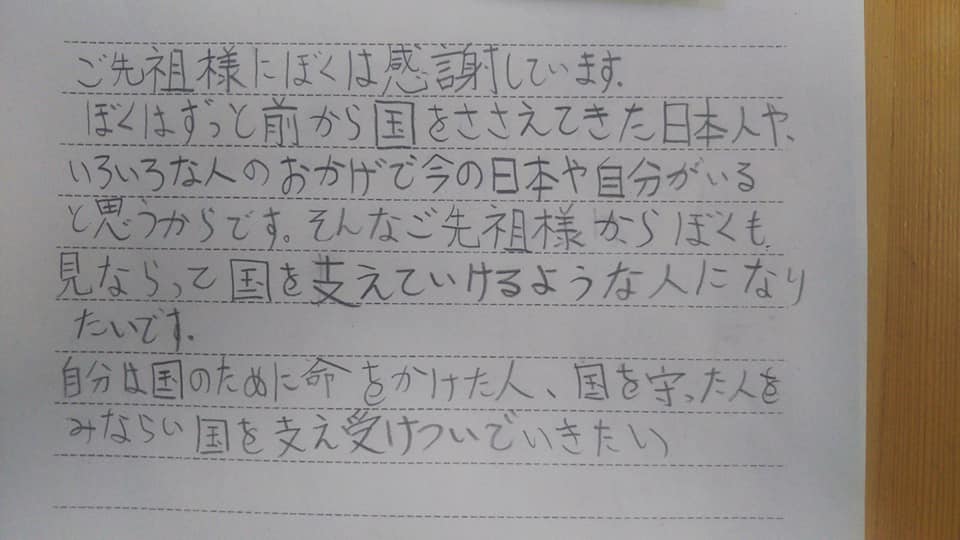 ご先祖様にぼくは感謝しています.
ぼくはずっと前から国をささえてきた日本人や、
いろいろな人のおかげで今の日本や自分がいる
と思うからです。そんなご先祖様からぼくも
見ならって国を支えていけるような人になり
たいです.
自分は国のために命をかけた人、国を守った人を
みならい国を支え受けついでいきたい